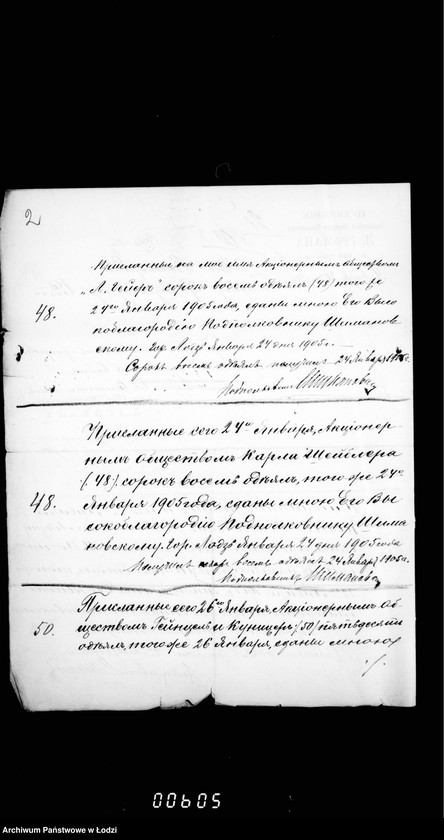 2
Присланные на мое имя Акціонернымъ обществомъ
„Л. Гейеръ" сорокъ восемь одѣялъ (48) того же
48.
24го Января 1905 года, сданы мною Его Высо
коблагородію Подполковнику Шиманов-
скому. Гор. Лодзь Января 24 дня 1905 г.
Сорокъ восемь одѣялъ получилъ 24 Января 1905г.
Подполковникъ Шимановскій
Присланные сего 24го Января, Акціонер-
нымъ обществомъ Карла Шейблера
(48) сорокъ восемь одѣялъ, того же 24го
48.
Января 1905 года, сданы мною Его Вы
сокоблагородію Подполковнику Шима
новскому. Гор. Лодзь Января 24 дня 1905 года
Получилъ сорокъ восемь одѣялъ 24 Января 1905г.
Подполковникъ Шимановскій
Присланные сего 26го Января, Акціонернымъ об
ществомъ Гейнцель и Куницеръ /50/ пятьдесятъ
50.
одѣялъ, того же 26 Января, сданы мною
./.
00605
Archiwum Państwowe w Łodzi